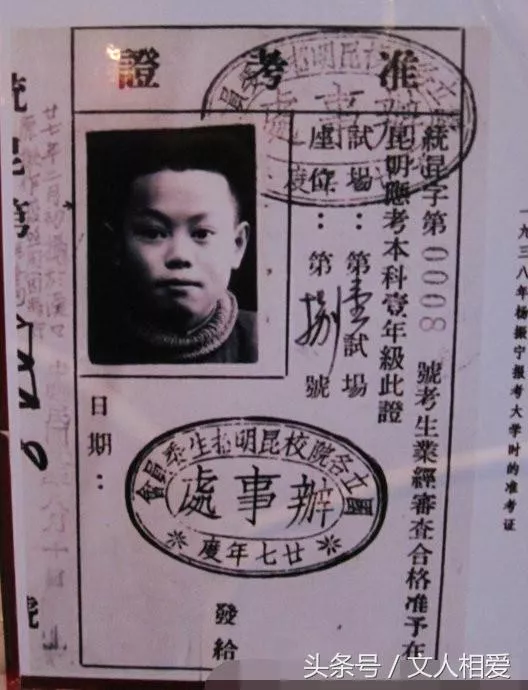 准考證
統昆字第0008號考生業經審查合格准予在
昆明應考本科壹年級此證
試場：第壹試場
座位：第捌號
日期：
發給
國立各院校昆明招生委員會
辦事處
廿七年度
廿七年二月初攝於漢口
號
一九三八年杨振宁报考大学时的准考证
头条号／文人相爱